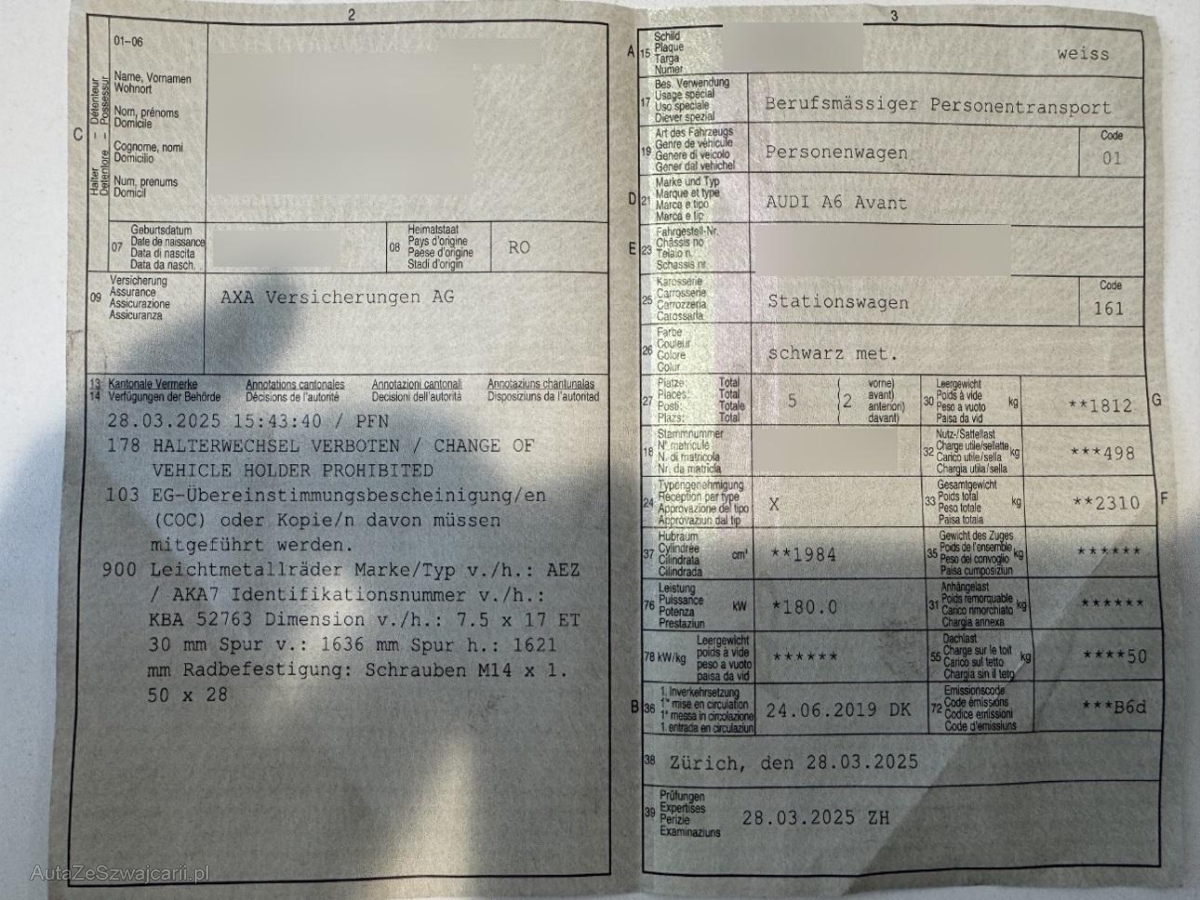 2
01-06
Halter – Détenteur
Detentore – Possessur
C
Name, Vornamen
Wohnort
Nom, prénoms
Domicile
Cognome, nomi
Domicilio
Num, prenums
Domicil
07
Geburtsdatum
Date de naissance
Data di nascita
Data da nasch.
08
Heimatstaat
Pays d'origine
Paese d'origine
Stadi d'origin
RO
09
Versicherung
Assurance
Assicurazione
Assicuranza
AXA Versicherungen AG
13 Kantonale Vermerke Annotations cantonales Annotazioni cantonali Annotaziuns chantunalas
14 Verfügungen der Behörde Décisions de l'autorité Decisioni dell'autorità Disposiziuns da l'autoritad
28.03.2025 15:43:40 / PFN
178 HALTERWECHSEL VERBOTEN / CHANGE OF
VEHICLE HOLDER PROHIBITED
103 EG-Übereinstimmungsbescheinigung/en
(COC) oder Kopie/n davon müssen
mitgeführt werden.
900 Leichtmetallräder Marke/Typ v./h.: AEZ
/ AKA7 Identifikationsnummer v./h.:
KBA 52763 Dimension v./h.: 7.5 x 17 ET
30 mm Spur v.: 1636 mm Spur h.: 1621
mm Radbefestigung: Schrauben M14 x 1.
50 x 28
3
A 15
Schild
Plaque
Targa
Numer
weiss
17
Bes. Verwendung
Usage spécial
Uso speciale
Diever spezial
Berufsmässiger Personentransport
19
Art des Fahrzeugs
Genre de véhicule
Genere di veicolo
Gener dal vehichel
Personenwagen
Code
01
D 21
Marke und Typ
Marque et type
Marca e tipo
Marca e tip
AUDI A6 Avant
E 23
Fahrgestell-Nr.
Châssis no
Telaio n.
Schassis nr.
25
Karosserie
Carrosserie
Carrozzeria
Carossaria
Stationswagen
Code
161
26
Farbe
Couleur
Colore
Colur
schwarz met.
27
Plätze: Total
Places: Total
Posti: Totale
Plazs: Total
5 (2
vorne)
avant)
anteriori)
davant)
30
Leergewicht
Poids à vide
Peso a vuoto
Paisa da vid
kg
**1812
G
18
Stammnummer
N° matricule
N. di matricola
Nr. da matricla
32
Nutz-/Sattellast
Charge utile/sellette
Carico utile/sella
Chargia utila/sella
kg
***498
24
Typengenehmigung
Réception par type
Approvazione del tipo
Approvaziun dal tip
X
33
Gesamtgewicht
Poids total
Peso totale
Paisa totala
kg
**2310
F
37
Hubraum
Cylindrée
Cilindrata
Cilindrada
cm³
**1984
35
Gewicht des Zuges
Poids de l'ensemble
Peso del convoglio
Paisa cumposiziun
kg
******
76
Leistung
Puissance
Potenza
Prestaziun
kW
*180.0
31
Anhängelast
Poids remorquable
Carico rimorchiato
Chargia annexa
kg
******
78 kW/kg
Leergewicht
poids à vide
peso a vuoto
paisa da vid
******
55
Dachlast
Charge sur le toit
Carico sul tetto
Chargia sin il tetg
kg
****50
B 36
1. Inverkehrsetzung
1re mise en circulation
1a messa in circolazione
1. entrada en circulaziun
24.06.2019 DK
72
Emissionscode
Code émissions
Codice emissioni
Code d'emissiuns
***B6d
38 Zürich, den 28.03.2025
39
Prüfungen
Expertises
Perizie
Examinaziuns
28.03.2025 ZH
AutaZeSzwajcarii.pl